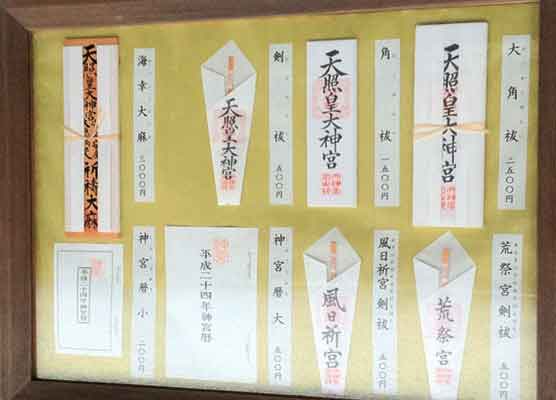 大角祓
二五〇〇円
天照皇大神宮
角祓
一五〇〇円
天照皇大神宮
剣祓
五〇〇円
天照皇大神宮
海幸大麻
三〇〇〇円
天照皇大神宮
祈祷大麻
荒祭宮剣祓
五〇〇円
荒祭宮
風日祈宮剣祓
五〇〇円
風日祈宮
神宮暦大
五〇〇円
平成二十四年神宮暦
神宮暦小
二〇〇円
平成二十四年神宮暦